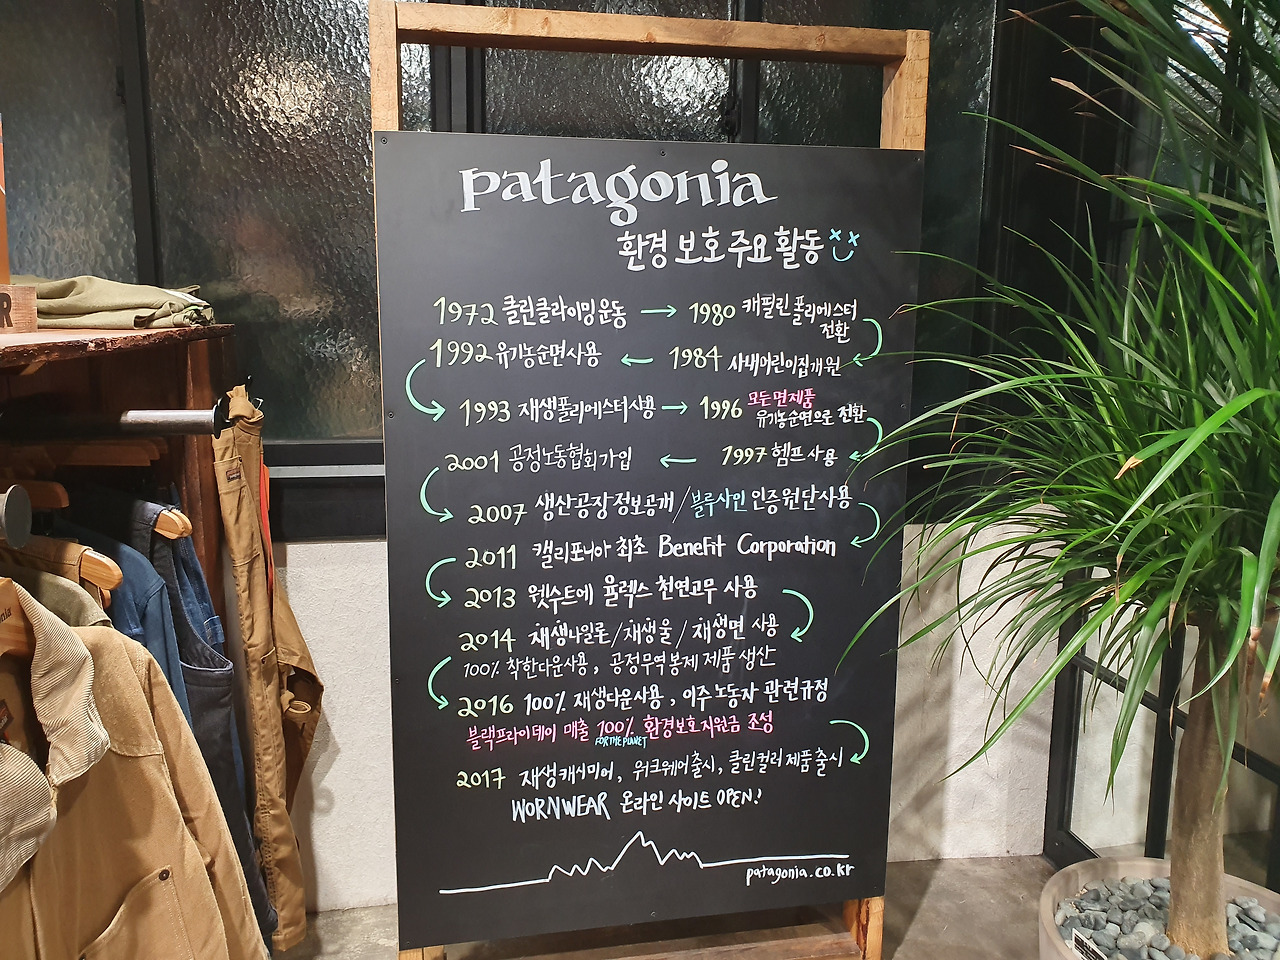 patagonia
환경 보호 주요 활동
1972 클린클라이밍 운동 → 1980 캐필린 폴리에스터 전환
1984 사내어린이집개원
1992 유기농순면사용 ←
1993 재생폴리에스터사용 → 1996 모든 면제품 유기농순면으로 전환
1997 헴프 사용
2001 공정노동협회가입 ←
2007 생산공장 정보공개 / 블루사인 인증원단사용
2011 캘리포니아 최초 Benefit Corporation
2013 웻수트에 율렉스 천연고무 사용
2014 재생나일론/재생울/재생면 사용
100% 착한다운사용, 공정무역봉제 제품 생산
2016 100% 재생다운사용, 이주노동자 관련규정
블랙프라이데이 매출 100% 환경보호지원금 조성
FOR THE PLANET
2017 재생캐시미어, 워크웨어출시, 클린컬러제품출시
WORNWEAR 온라인 사이트 OPEN!
patagonia.co.kr